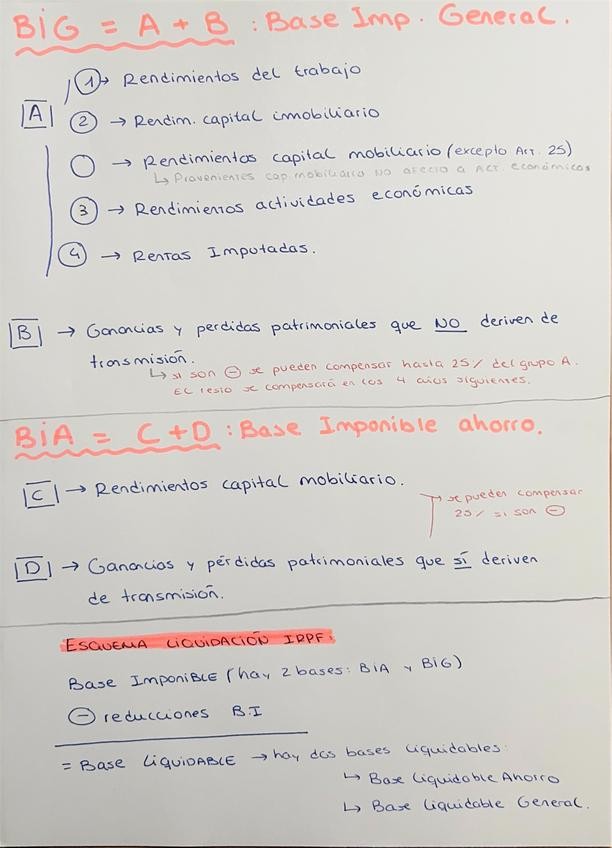 BiG = A + B : Base Imp. General.
A
1 → Rendimientos del trabajo
2 → Rendim. capital inmobiliario
→ Rendimientos capital mobiliario (excepto Art. 25)
↳ Provenientes cap. mobiliario NO afecto a act. económicas
3 → Rendimientos actividades económicas
4 → Rentas Imputadas.
B → Ganancias y perdidas patrimoniales que NO deriven de
transmisión.
↳ si son ⊖ se pueden compensar hasta 25% del grupo A.
El resto se compensará en los 4 años siguientes.
BiA = C+D : Base Imponible ahorro.
C → Rendimientos capital mobiliario.
→ se pueden compensar
25% si son ⊖
D → Ganancias y pérdidas patrimoniales que sí deriven
de transmisión.
ESQUEMA LIQUIDACIÓN IRPF:
Base Imponible (hay 2 bases: BiA y BiG)
⊖ reducciones B.I
= Base LiQUIDABLE → hay dos bases liquidables:
↳ Base Liquidable Ahorro
↳ Base Liquidable General.